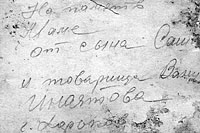 На память
Маме
от сына Саши
и товарища Вани
Игнатова
г. Харьков